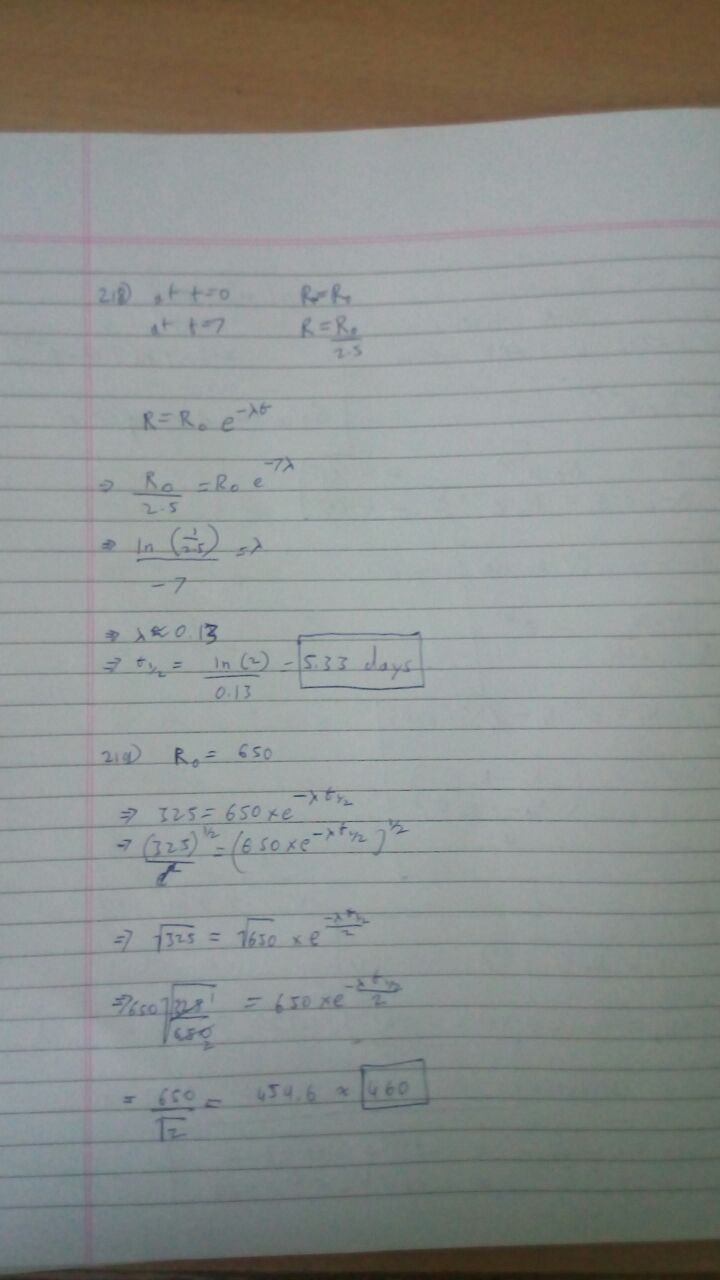 218) at t=0 R=R₀
at t=7 R=R₀/2.5
R=R₀ e^-λt
⇒ R₀/2.5 = R₀ e^-7λ
⇒ ln(1/2.5)/-7 = λ
⇒ λ ≈ 0.13
⇒ t½ = ln(2)/0.13 = 5.33 days
219) R₀ = 650
⇒ 325 = 650 × e^-λt½
⇒ (325)^½ = (650 × e^-λt½)^½
⇒ √325 = √650 × e^-λt½/2
⇒ 650√325/650 = 650 × e^-λt½/2
= 650/√2 = 459.6 ≈ 460